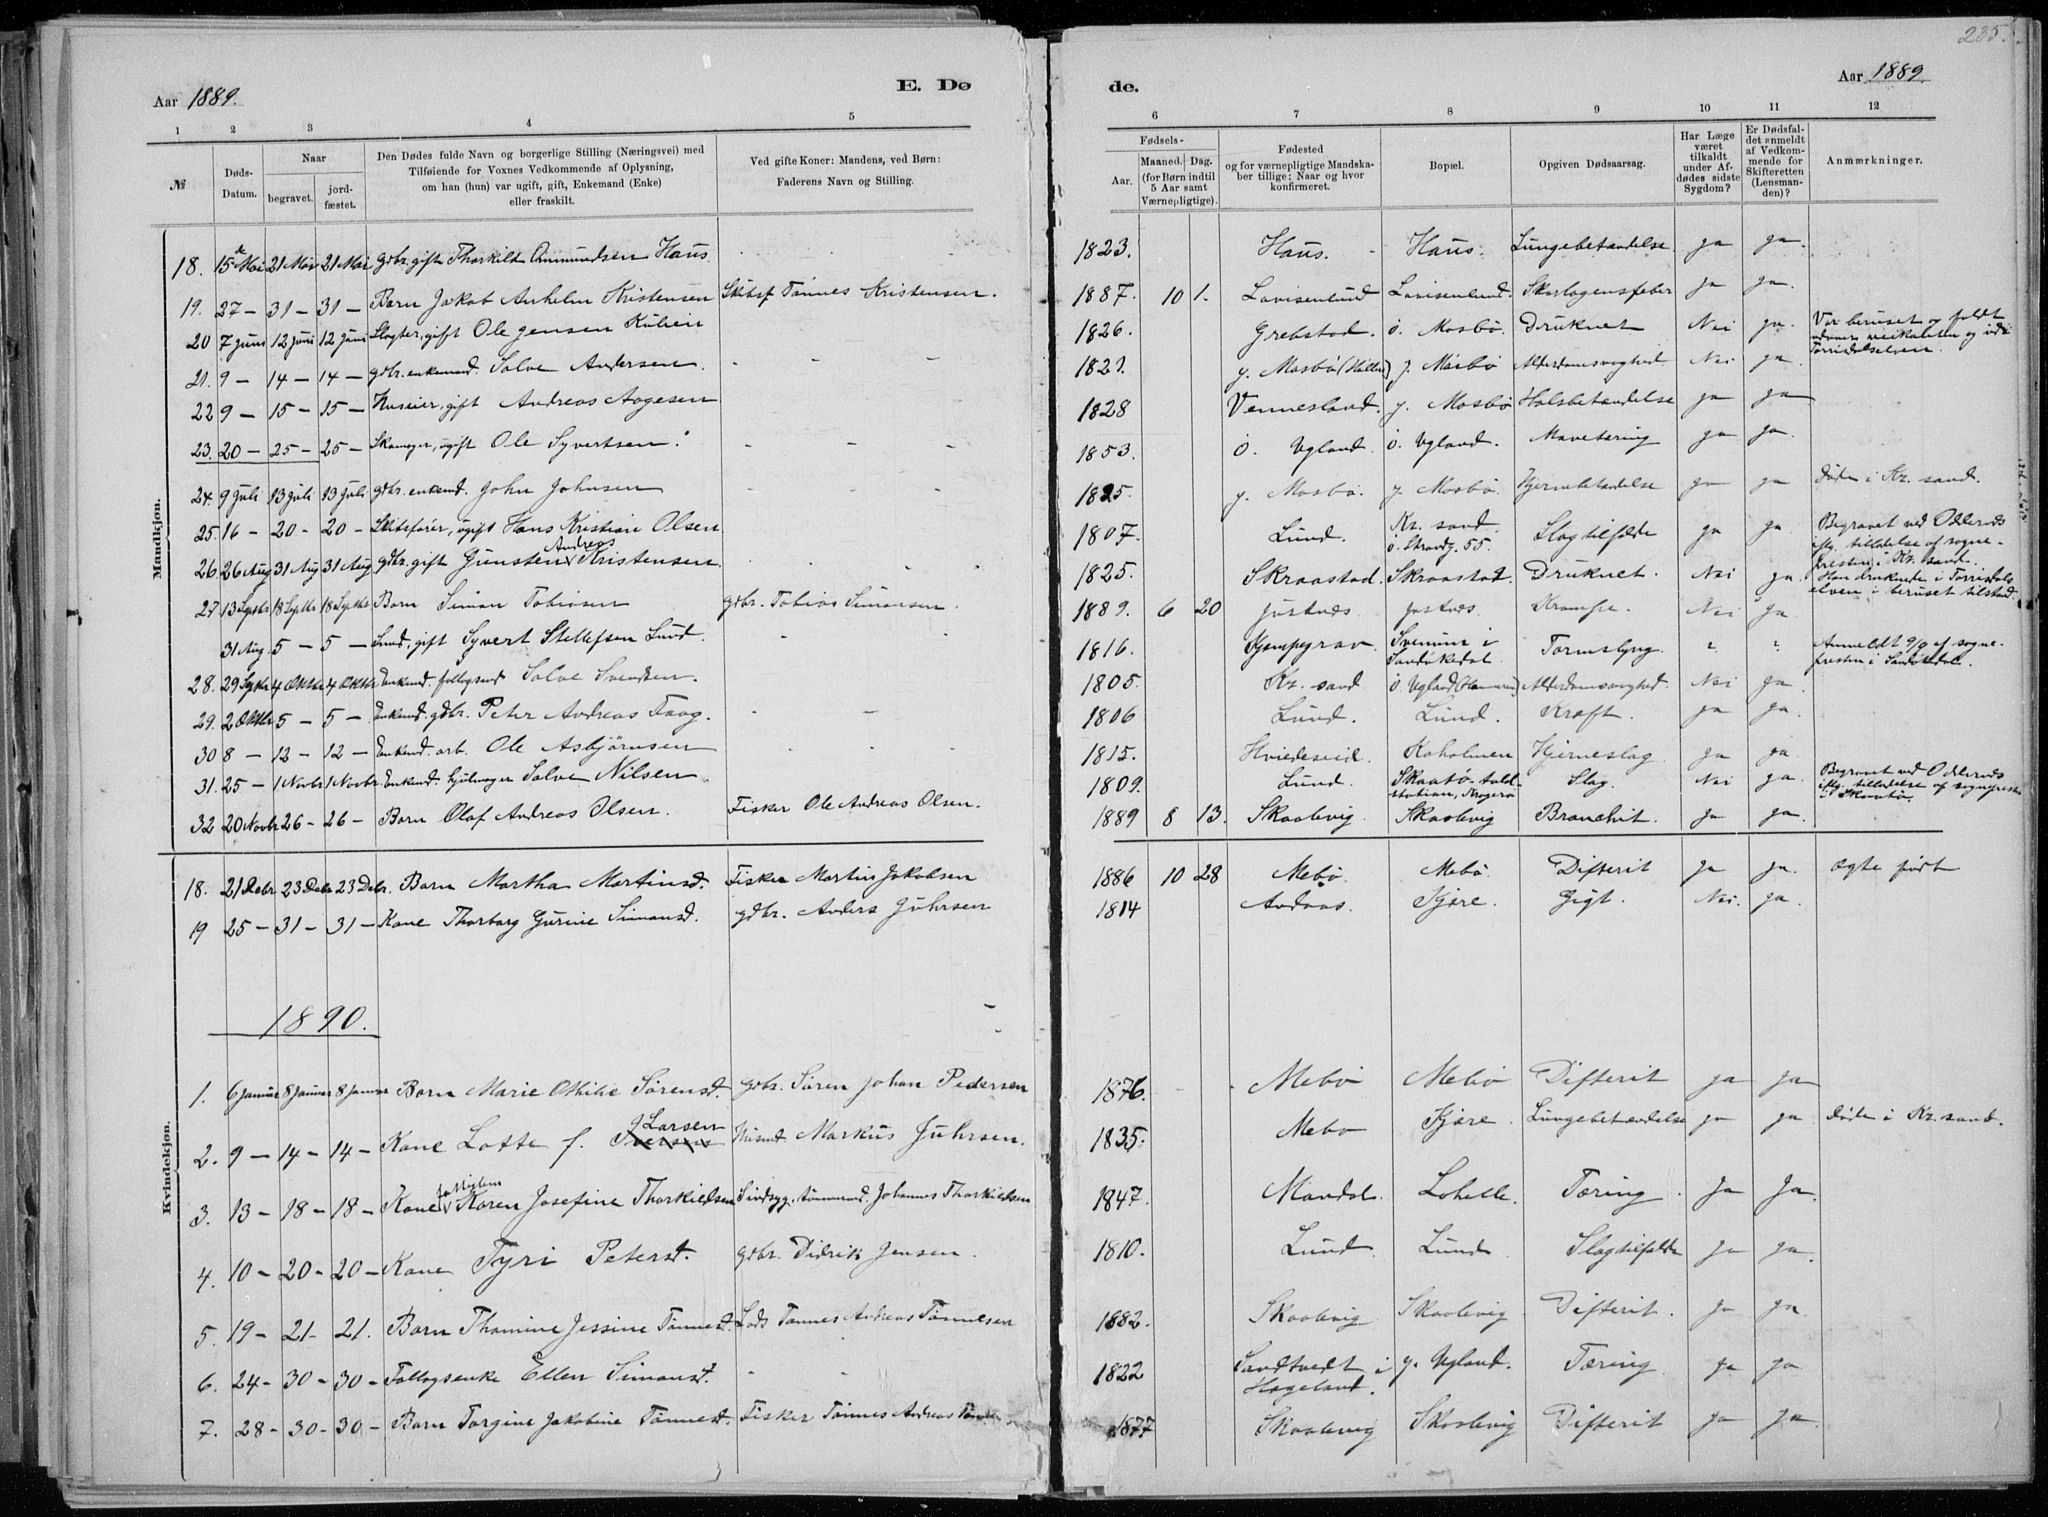 235.
Aar 1889. E. Dø
de. Aar 1889
1 2 3 4 5
6 7 8 9 10 11 12
№
Døds-Datum.
Naar
begravet. jord-fæstet.
Den Dødes fulde Navn og borgerlige Stilling (Næringsvei) med
Tilføiende for Voxnes Vedkommende af Oplysning,
om han (hun) var ugift, gift, Enkemand (Enke)
eller fraskilt.
Ved gifte Koner: Mandens, ved Børn:
Faderens Navn og Stilling.
Fødsels-
Aar. Maaned. Dag.
(for Børn indtil
5 Aar samt
Værnepligtige).
Fødested
og for værnepligtige Mandska-
ber tillige: Naar og hvor
konfirmeret.
Bopæl.
Opgiven Dødsaarsag.
Har Læge
været
tilkaldt
under Af-
dødes sidste
Sygdom?
Er Dødsfal-
det anmeldt
af Vedkom-
mende for
Skifteretten
(Lensman-
den)?
Anmærkninger.
Mandkjøn.
18. 15de Mai 21 Mai 21 Mai gdbr. gift Thorkild Ommundsen Haus 1823. Haus. Haus. Lungebetændelse ja ja.
19. 27 – 31 – 31 – Barn Jakob Anhelm Kristensen Skibsf Tønnes Kristensen. 1887. 10 1. Lovisenlund Lovisenlund. Skarlagensfeber ja ja.
20 7 Juni 12 Juni 12 Juni Slagter, gift Ole Jensen 1826. Grebstad. ö. Mosbö. Druknet Nei ja. Var beruset og faldt
21. 9 – 14 – 14 – gdbr. enkemand. Salve Andersen. y. Mosbö y. Mosbö Alderdomssvaghed Nei ja.
22 9 – 15 – 15 – Huseier, gift Andreas Aagesen 1828 Vennesland. y. Mosbö Halsbetændelse ja ja
23. 20 – 25 – 25 – Skomager, ugift Ole Syvertsen. 1853. ö. Ugland. ö. Ugland. Mavetæring ja ja.
24. 9 Juli 13 Juli 13 Juli gdbr. enkemd. John Johnsen 1825. y. Mosbö. y. Mosbö. Hjernebetændelse ja ja Døde i Kr. sand.
25. 16 – 20 – 20 – Skibsfører, ugift Hans Kristian Olsen 1807. Lund. Kr. sand. ö. Strandg. 55. Slagtilfælde ja ja Begravet ved Oddernes
iflg. tilladelse af sogne-
presten i Kr. sand.
26. 26 Aug 31 Aug 31 Aug gdbr. gift Gunsten Andreas Kristensen. 1825. Skraastad. Skraastad. Druknet. Nei ja Han druknede i Torrisdals
elven i beruset tilstand.
27 13 Septbr 18 Septbr 18 Septbr Barn Simon Tobiasen gdbr. Tobias Simonsen. 1889. 6 20 Justnes Justnes. Krampe. Nei ja
31 Aug. 5 – 5 – gift Syvert Stellefsen Lund. 1816. Kjempegrav. i Sandökedal. " " Anmeldt 9/9 af sogne-
presten i Sandökedal.
28. 29 Septbr 4 Oktbr 4 Oktbr Enkemd. Salve Svendsen. 1805. Kr. sand ö. Ugland Alderdomssvaghed. Nei ja.
29. 2 Oktbr 5 – 5 – Enkemd. gdbr. Peter Andreas Faag. 1806 Lund. Lund. Kræft. ja ja.
30 8 – 12 – 12 – Enkemd. arb. Ole Asbjörnsen 1815. Hviedeseid Koholmen Hjerneslag ja ja
31. 25 – 1 Novbr 1 Novbr. Enkemd. hjulmager Salve Nilsen. 1809. Lund. Skaatö Slag. Nei ja. Begravet ved Oddernes
iflg. tilladelse af sognepresten
i Skaatö.
32 20 Novbr 26 – 26 – Barn Olaf Andreas Olsen. Fisker Ole Andreas Olsen. 1889 8 13. Skaalevig Skaalevig Bronchit. ja ja.
Kvindekjøn.
18. 21 Debr 23 Debr 23 Debr. Barn Martha Martinsd. Fisker Martin Jakobsen 1886 10 28 Mebö. Mebö. Difterit ja ja. Ægte født
19 25 – 31 – 31 – Kone Thorborg Gurine Simonsd. gdbr. Anders Juhrsen 1814 Andaas. Kjöre. Gigt. Nei. ja.
1890.
1. 6 Januar 8 Januar 8 Januar Barn Marie Othilie Sörensd. gdbr. Sören Johan Pedersen 1876. Mebö Mebö Difterit ja ja
2. 9 – 14 – 14 – Kone Lotte f. Larsen Husmd Markus Juhrsen. 1835. Mebö Kjöre. Lungebetændelse ja ja Døde i Kr. sand.
3. 13 – 18 – 18 – Kone Karen Josefine Thorkielsen Sindsyg. tömmermd. Johannes Thorkielsen 1847. Mandal. Lohelle. Tæring ja ja.
4. 10 – 20 – 20 – Kone Tyri Petersd. gdbr. Didrik Jensen. 1810. Lund. Lund. Slagtilfælde ja ja.
5. 19 – 21 – 21. Barn Thomine Jessine Tönnesd. Lods Tönnes Andreas Tönnesen 1882. Skaalevig Skaalevig Difterit. ja ja.
6. 24 – 30 – 30 – Follogsenke Ellen Simonsd. 1822 Sandtvedt i
Hægeland. y. Ugland. Tæring. ja ja.
7. 28 – 30 – 30 – Barn Torgine Jakobine Tönnesd. Fisker Tönnes Andreas 1877 Skaalevig Skaalevig Difterit ja ja.